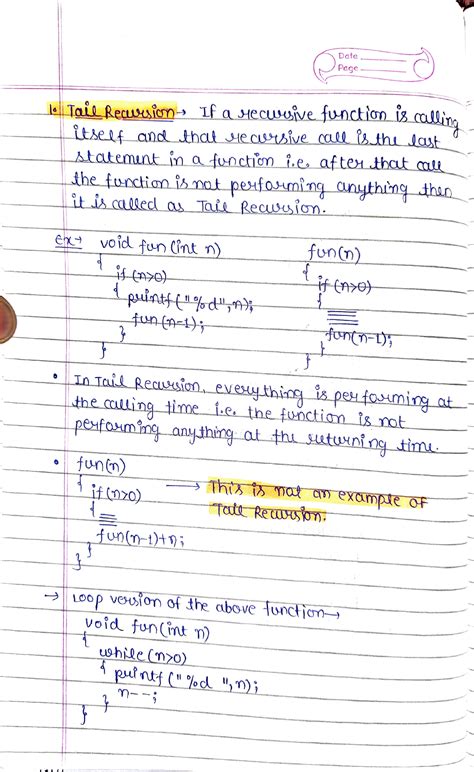 Date
Page
1. Tail Recursion → If a recursive function is calling
itself and that recursive call is the last
statement in a function i.e. after that call
the function is not performing anything then
it is called as Tail Recursion.
Ex→ void fun(int n)
{
if (n>0)
{ printf("%d",n);
fun(n-1);
}
}
fun(n)
{
if (n>0)
{
fun(n-1);
}
}
• In Tail Recursion, everything is performing at
the calling time i.e. the function is not
performing anything at the returning time.
• fun(n)
{ if(n>0)
{
fun(n-1)+n;
}
}
→ This is not an example of
Tail Recursion.
→ Loop version of the above function→
void fun(int n)
{ while(n>0)
{ printf("%d ",n);
n--;
}
}